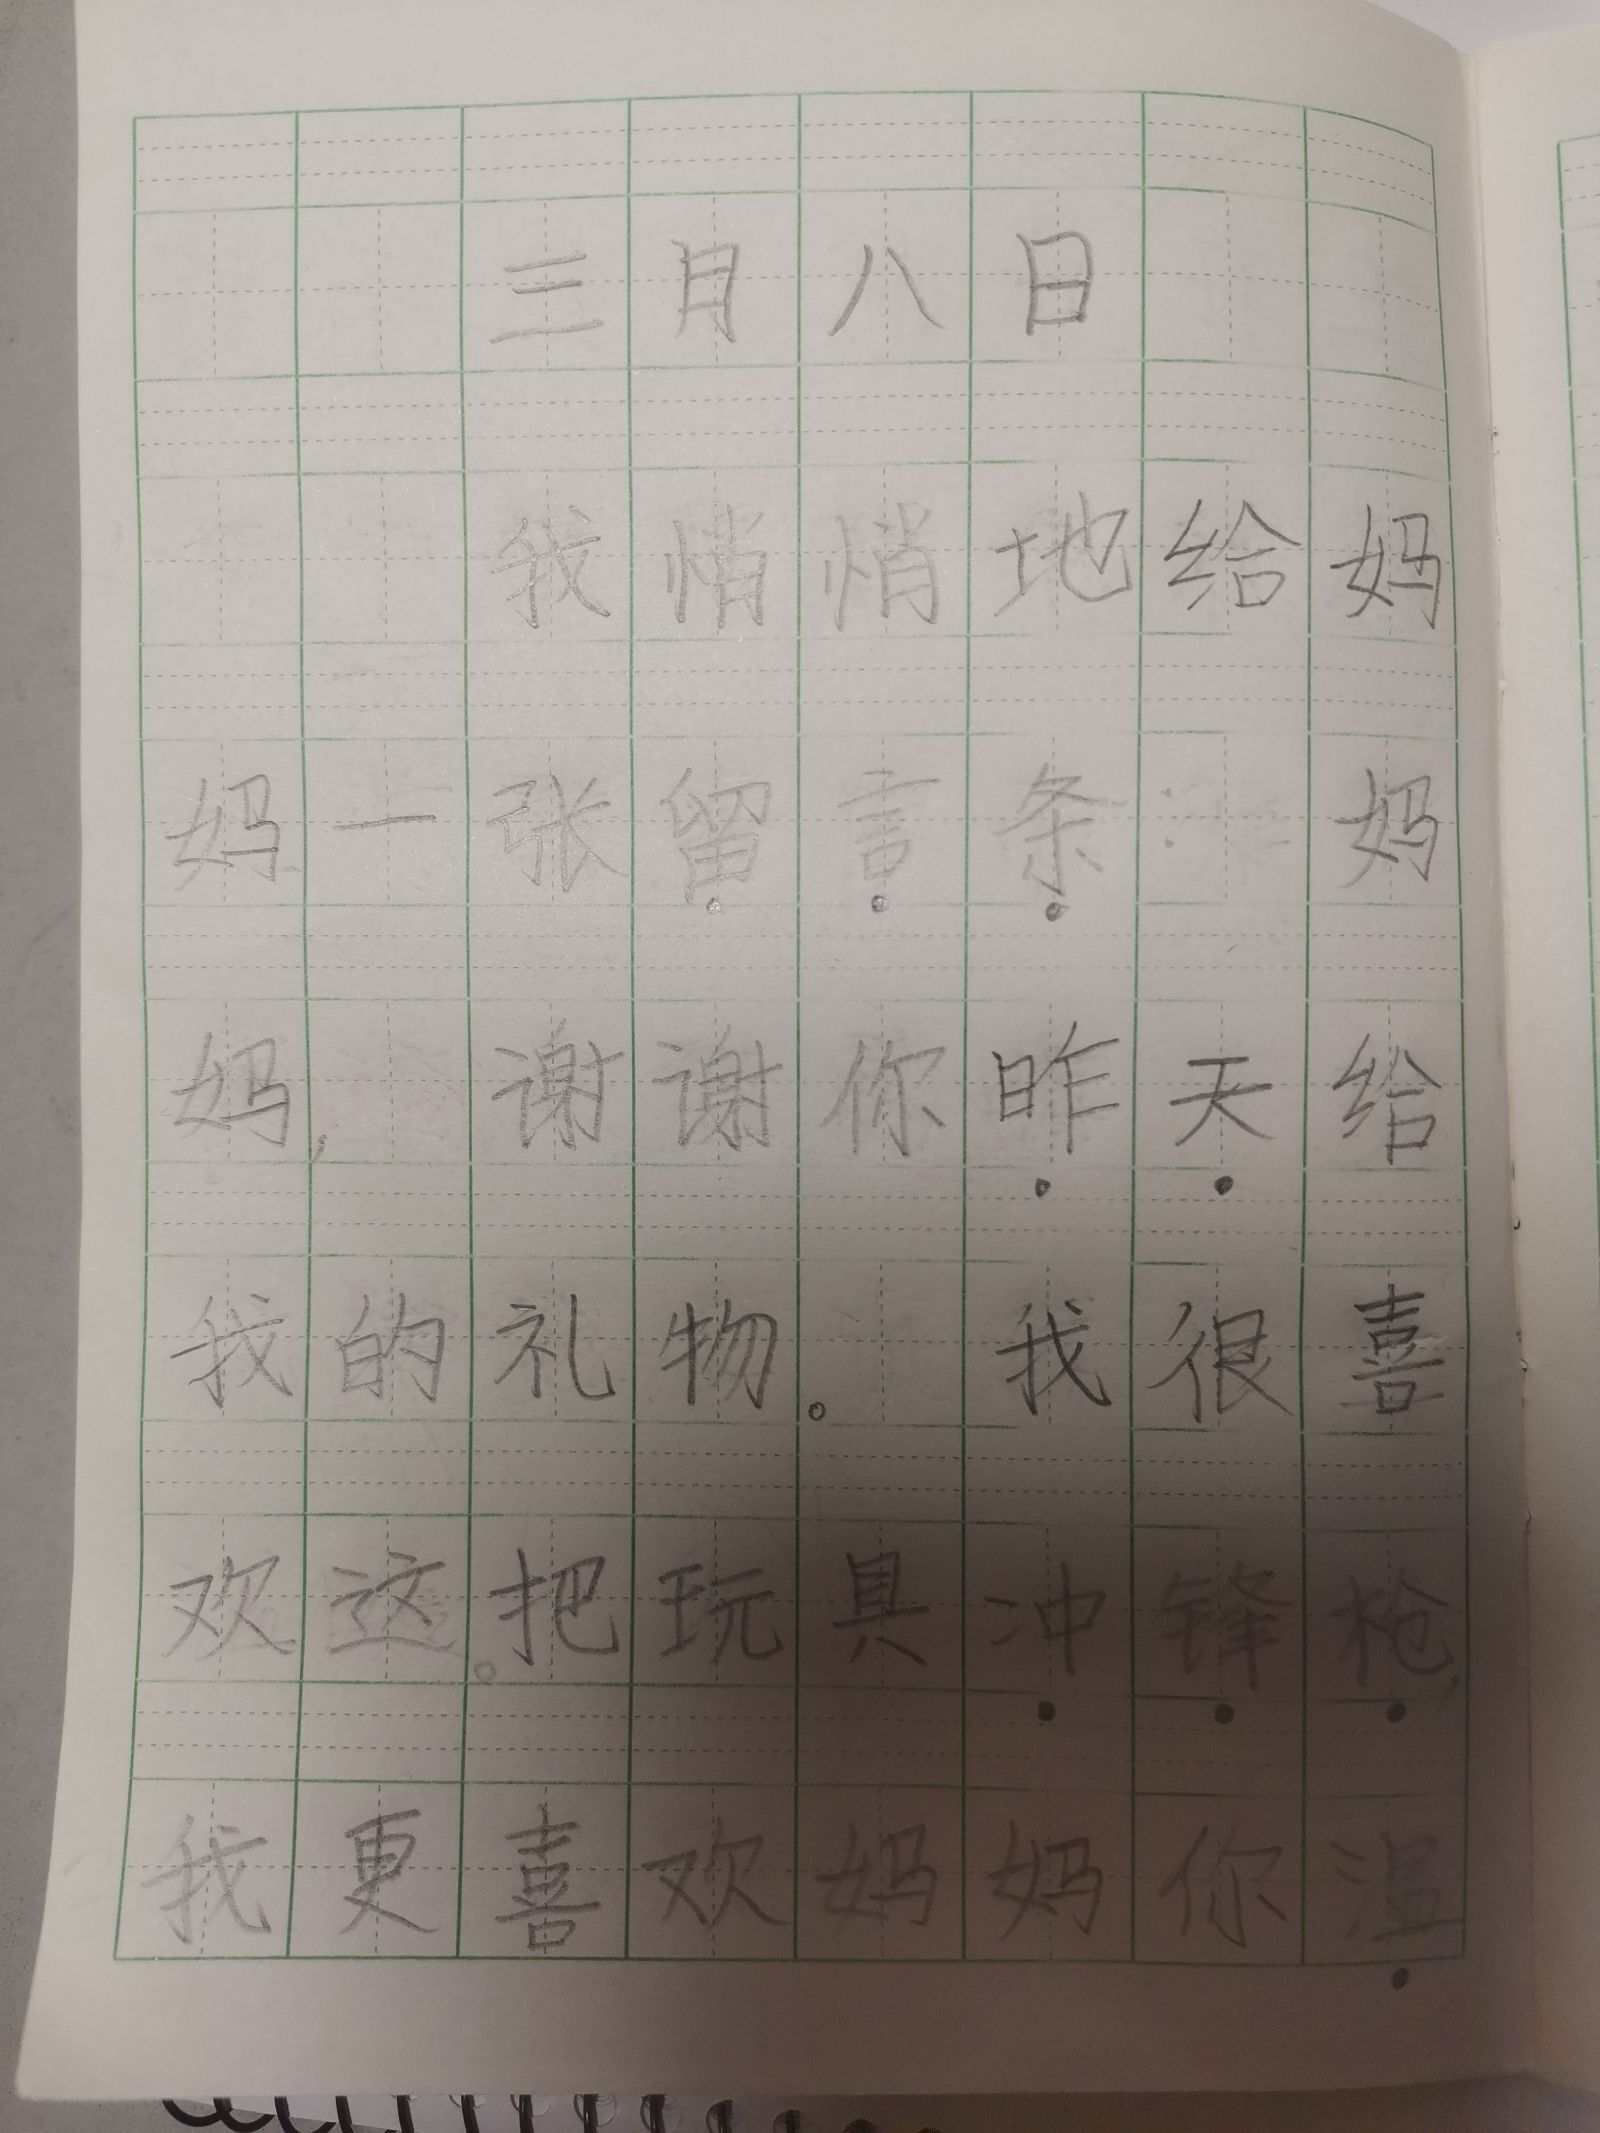 三月八日
我悄悄地给妈
妈一张留言条：妈
妈，谢谢你昨天给
我的礼物。我很喜
欢这。把玩具冲锋枪，
我更喜欢妈妈你温